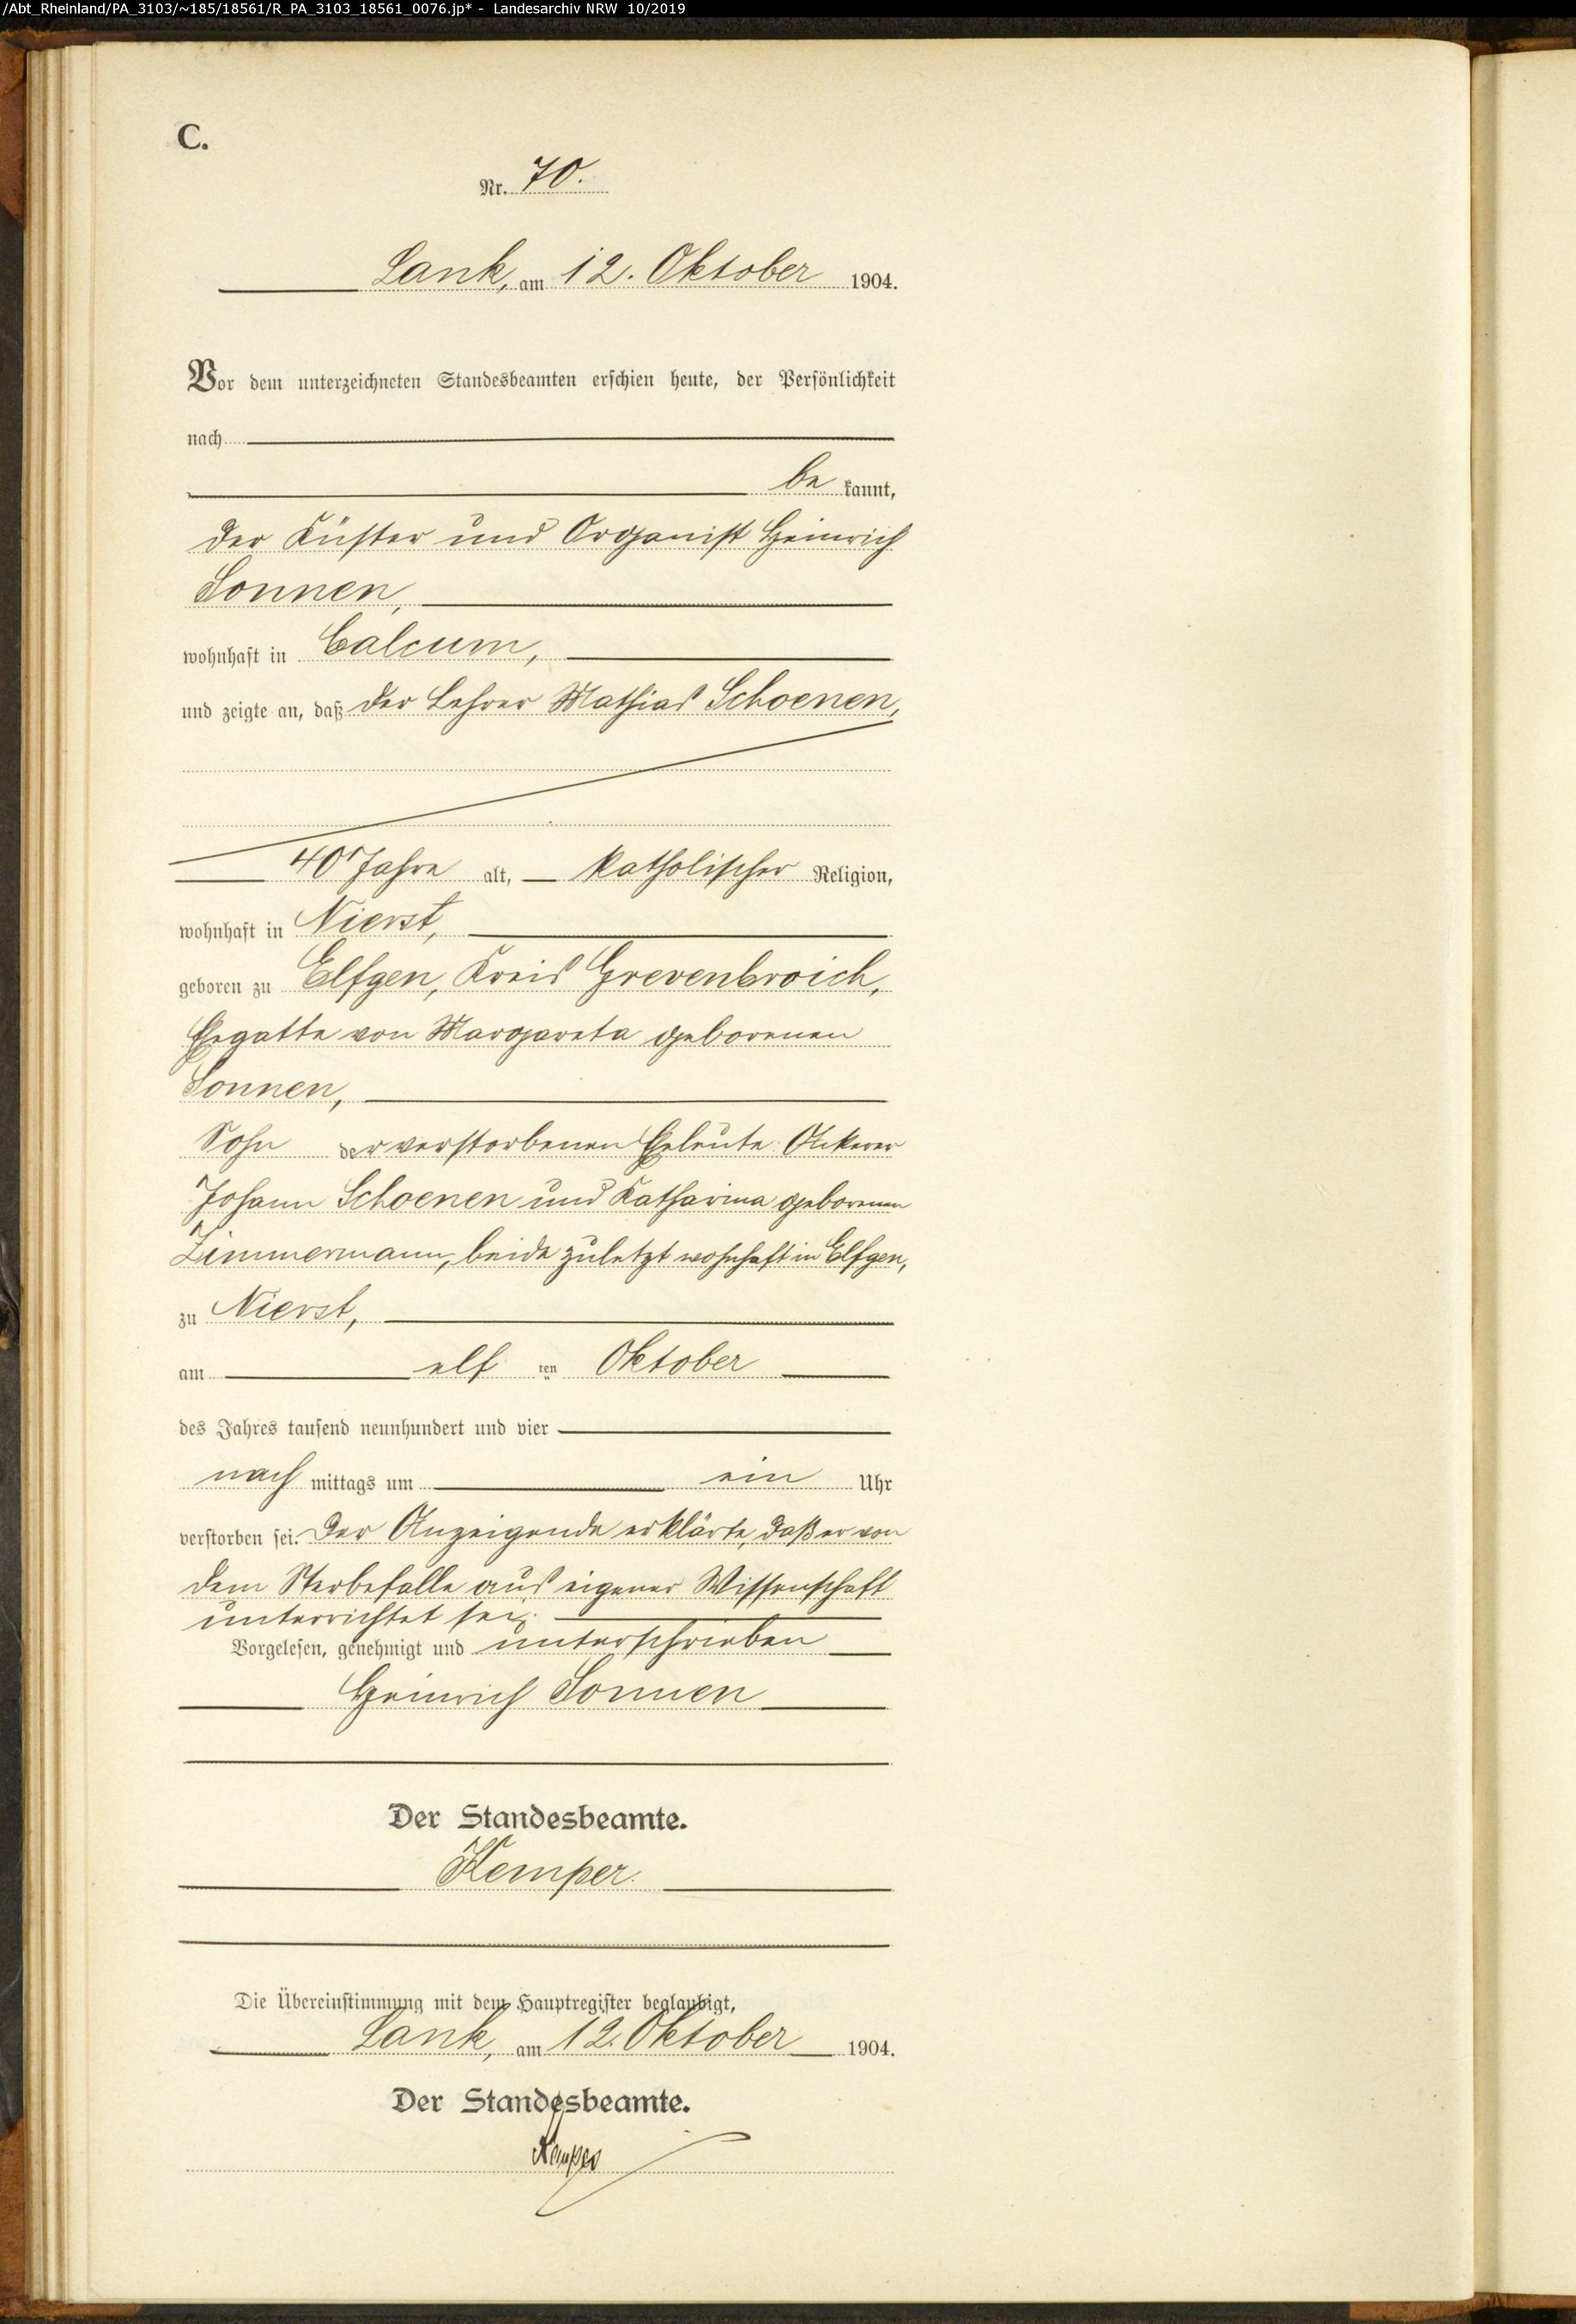 /Abt_Rheinland/PA_3103/~185/18561/R_PA_3103_18561_0076.jp* - Landesarchiv NRW 10/2019
C.
Nr. 70.
Lank, am 12. Oktober 1904.
Vor dem unterzeichneten Standesbeamten erschien heute, der Persönlichkeit
nach
be kannt,
der Küster und Organist Heinrich
Sonnen,
wohnhaft in Calcum,
und zeigte an, daß der Lehrer Mathias Schoenen,
40 Jahre alt, katholischer Religion,
wohnhaft in Nierst,
geboren zu Elfgen, Kreis Grevenbroich,
Ehegatte von Margareta geborenen
Sonnen,
Sohn der verstorbenen Eheleute Ackerer
Johann Schoenen und Katharina geborenen
Zimmermann, beide zuletzt wohnhaft in Elfgen,
zu Nierst,
am elf ten Oktober
des Jahres tausend neunhundert und vier
nach mittags um ein Uhr
verstorben sei. Der Anzeigende erklärte, daß er von
dem Sterbefalle aus eigener Wissenschaft
unterrichtet sei.
Vorgelesen, genehmigt und unterschrieben
Heinrich Sonnen
Der Standesbeamte.
Kemper.
Die Übereinstimmung mit dem Hauptregister beglaubigt,
Lank, am 12. Oktober 1904.
Der Standesbeamte.
Kemper